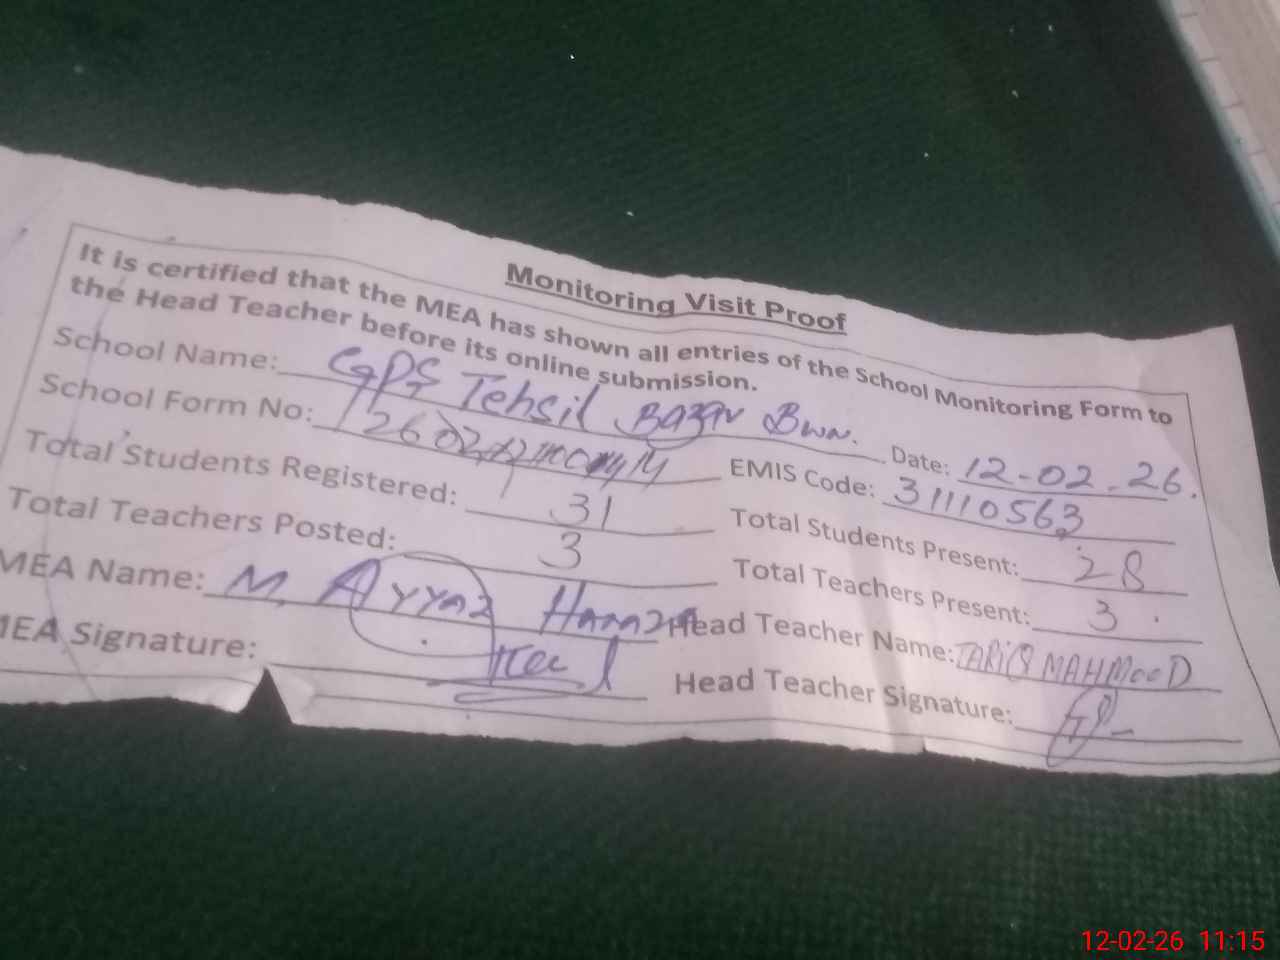 Monitoring Visit Proof
It is certified that the MEA has shown all entries of the School Monitoring Form to
the Head Teacher before its online submission.
School Name: GPS Tehsil Bazar Bwn. Date: 12-02-26.
School Form No: EMIS Code: 31110563
Total Students Registered: 31 Total Students Present: 28
Total Teachers Posted: 3 Total Teachers Present: 3
MEA Name: M. Ayyaz Hamza Head Teacher Name: TARIQ MAHMOOD
MEA Signature: Head Teacher Signature:
12-02-26 11:15